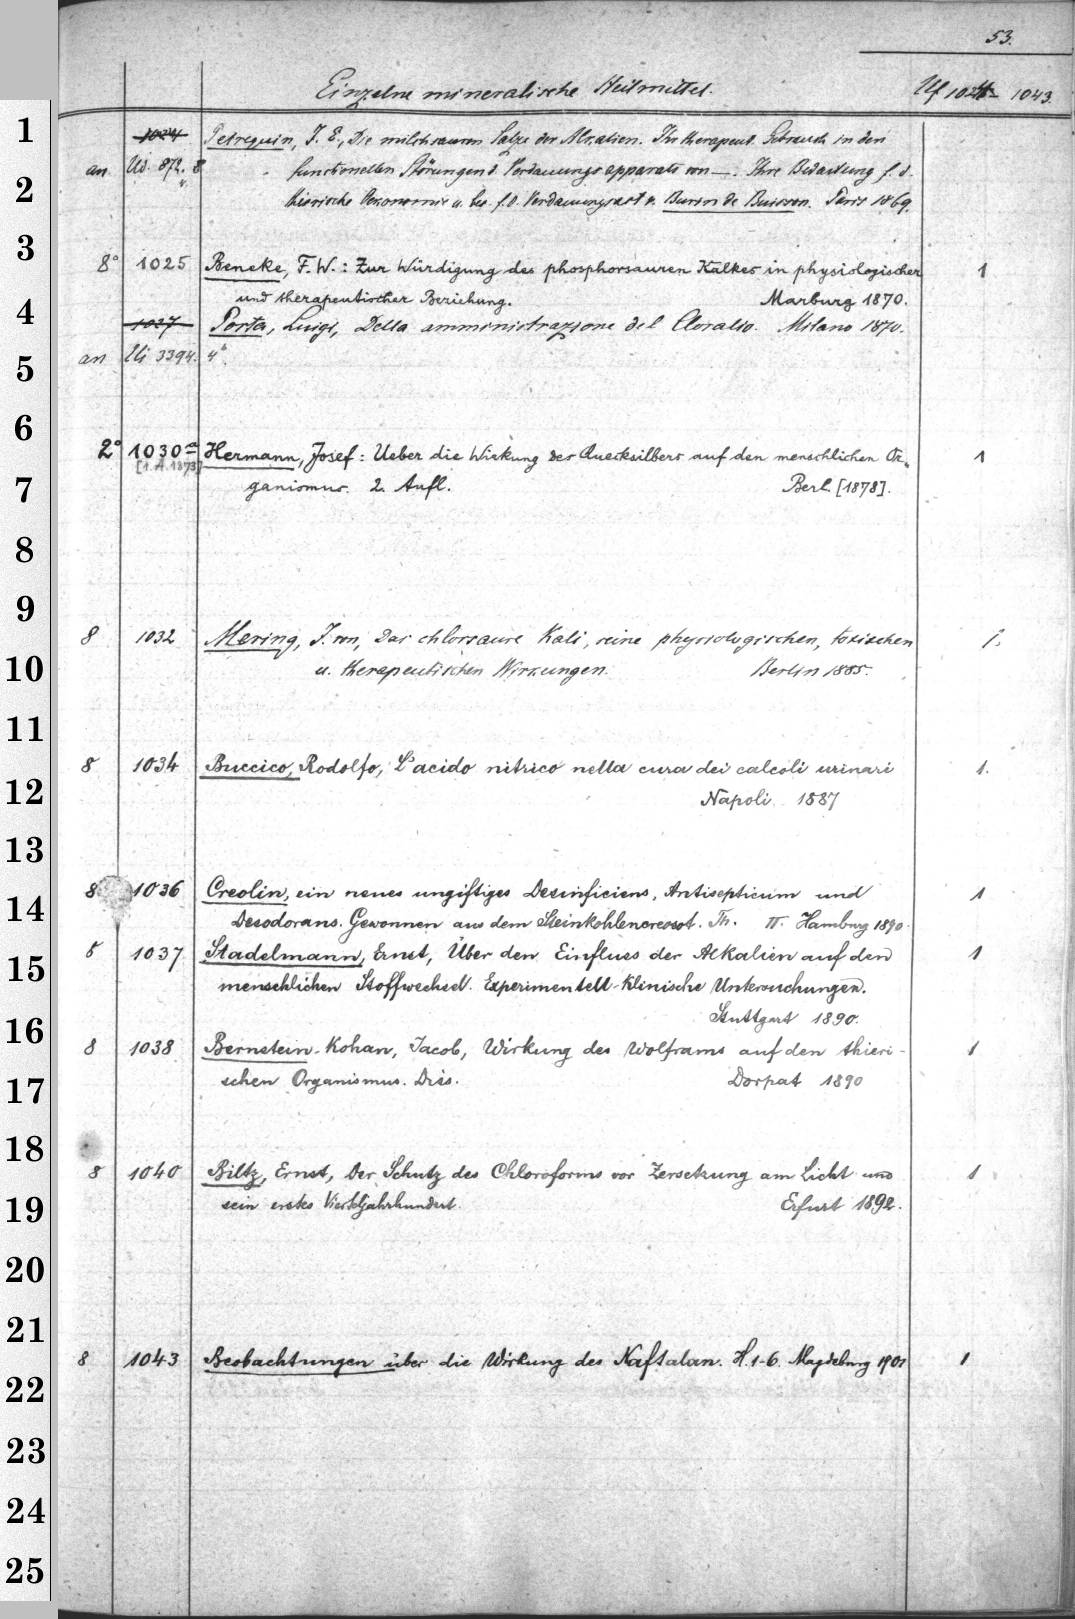 53.
Einzelne mineralische Heilmittel. Uf 1024- 1043.
1
1024 Petrequin, J. E., Die milchsauren Salze der Alkalien. Ihr therapeut. Gebrauch in den
an Ud. 872. 8 functionellen Störungen d. Verdauungsapparats von —. Ihre Bedeutung f. d.
2
thierische Oekonomie u. bes. f. d. Verdauungsact v. Burin de Buisson. Paris 1869.
3
8° 1025 Beneke, F. W.: Zur Würdigung des phosphorsauren Kalkes in physiologischer 1
und therapeutischer Beziehung. Marburg 1870.
4
1027 Porta, Luigi, Della amministrazione del Cloralio. Milano 1870.
an Ui 3394. 4°.
5
6
2° 1030a Hermann, Josef: Ueber die Wirkung des Quecksilbers auf den menschlichen Or- 1
[1. A. 1873]
7
ganismus. 2. Aufl. Berl. [1878].
8
9
8 1032 Mering, J. von, Das chlorsaure Kali, seine physiologischen, toxischen 1.
10
u. therapeutischen Wirkungen. Berlin 1885.
11
8 1034 Buccico, Rodolfo, L'acido nitrico nella cura dei calcoli urinari 1.
12
Napoli 1887
13
8 1036 Creolin, ein neues ungiftiges Desinficiens, Antisepticum und 1
14
Desodorans. Gewonnen aus dem Steinkohlencreosot. Th. II. Hamburg 1890.
8 1037 Stadelmann, Ernst, Über den Einfluss der Alkalien auf den 1
15
menschlichen Stoffwechsel. Experimentell-klinische Untersuchungen.
Stuttgart 1890.
16
8 1038 Bernstein-Kohan, Jacob, Wirkung des Wolframs auf den thieri- 1
17
schen Organismus. Diss. Dorpat 1890
18
8 1040 Biltz, Ernst, Der Schutz des Chloroforms vor Zersetzung am Licht und 1
19
sein erstes Vierteljahrhundert. Erfurt 1892.
20
21
8 1043 Beobachtungen über die Wirkung des Naftalan. H. 1-6. Magdeburg 1901 1
22
23
24
25